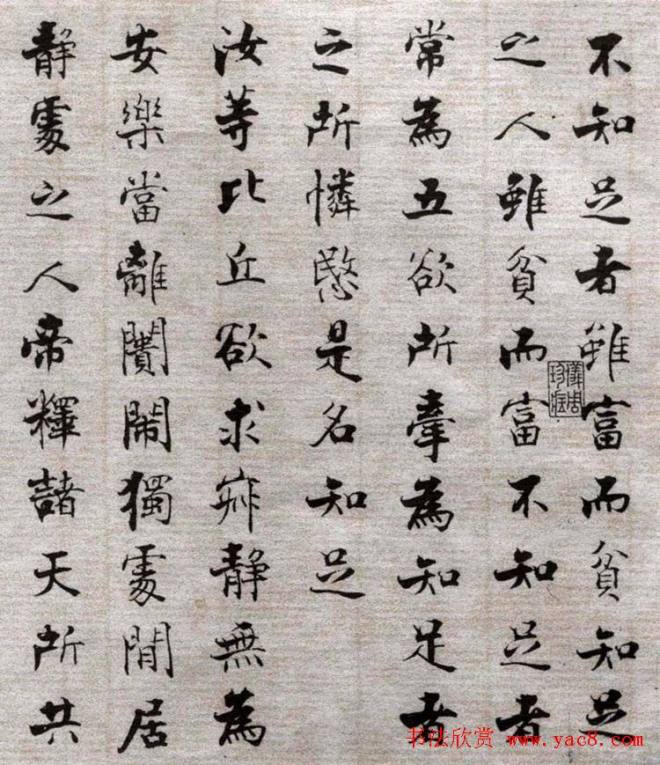 不知足者雖富而貧知足
之人雖貧而富不知足者
常為五欲所牽為知足者
之所憐愍是名知足
汝等比丘欲求寂靜無為
安樂當離憒鬧獨處閒居
靜處之人帝釋諸天所共
书法欣赏 www.yac8.com